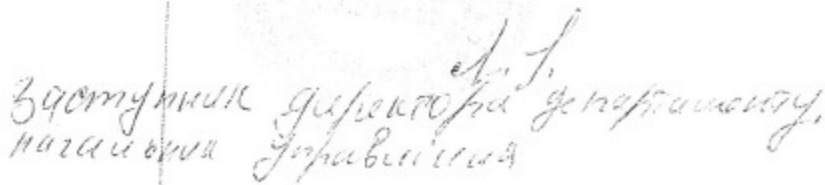 Заступник директора департаменту,
начальник управління